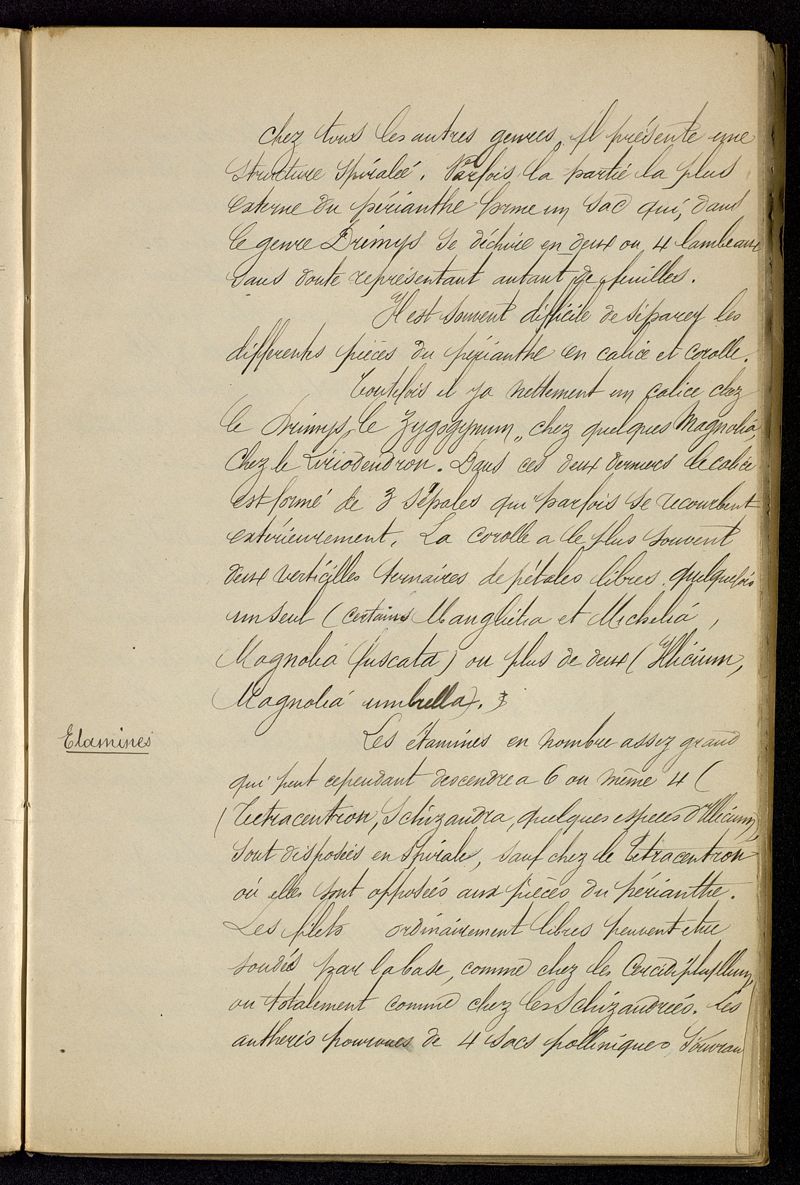 chez tous les autres genres, il présente une
structure spiralée. Parfois la partie la plus
externe du périanthe forme un sac qui, dans
le genre Drimys se déchire en deux ou 4 lambeaux
sans doute représentant autant de feuilles.
Il est souvent difficile de séparer les
différentes pièces du périanthe en calice et corolle.
Toutefois il ya nettement un calice chez
le Drimys, le Zygogynum, chez quelques Magnolia,
chez le Liriodendron. Dans ces deux derniers le calice
est formé de 3 sépales qui parfois se recourbent
extérieurement. La corolle a le plus souvent
deux verticilles ternaires de pétales libres, quelquefois
un seul (certains Manglietia et Michelia,
Magnolia fuscata) ou plus de deux (Illicium,
Magnolia umbrella).
Etamines
Les étamines en nombre assez grand
qui peut cependant descendre a 6 ou même 4 (
(Tetracentron, Schizandra, quelques espèces d'Illicium)
sont disposées en spirale, sauf chez le Tetracentron
où elles sont opposées aux pièces du périanthe.
Les filets ordinairement libres peuvent etre
soudés par la base, comme chez les Cercidiphyllum,
ou totalement comme chez les Schizandrées. Les
anthères pourvues de 4 sacs polliniques s'ouvran